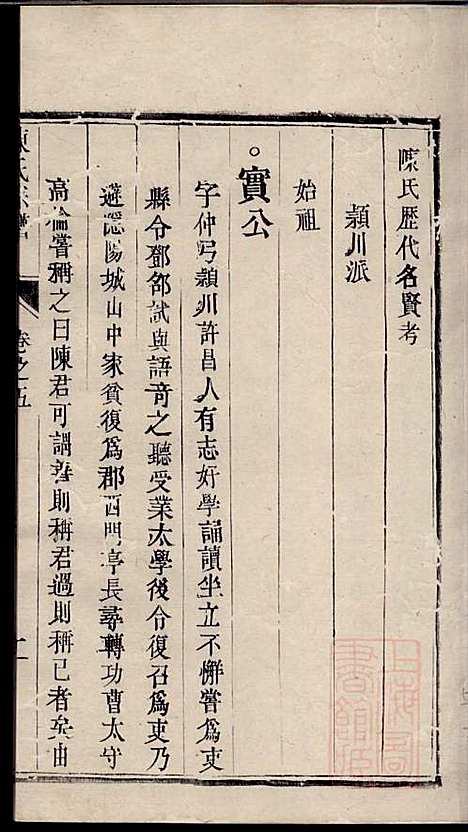 陳氏歷代名賢考
穎川派
始祖
。實公
字仲弓穎川許昌人有志好學誦讀坐立不懈嘗爲吏
縣令鄧邵試與語奇之聽受業太學後令復召爲吏乃
避隱陽城山中家貧復爲郡西門亭長尋轉功曹太守
高倫嘗稱之曰陳君可謂善則稱君過則稱已者矣由
卷之五